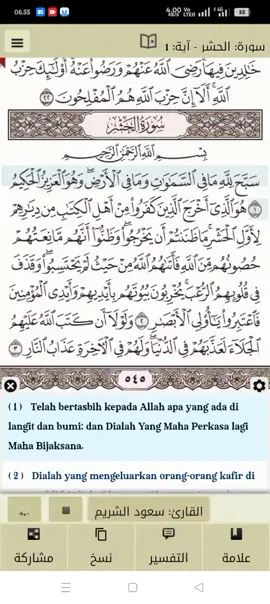 06.55
4.00 KB/S
55
سورة: الحشر - آية: 1
خَٰلِدِينَ فِيهَا رَضِيَ ٱللَّهُ عَنْهُمْ وَرَضُوا۟ عَنْهُ أُو۟لَٰٓئِكَ حِزْبُ
ٱللَّهِ أَلَآ إِنَّ حِزْبَ ٱللَّهِ هُمُ ٱلْمُفْلِحُونَ ٢٢
سُورَةُ الحَشْرِ
بِسْمِ ٱللَّهِ ٱلرَّحْمَٰنِ ٱلرَّحِيمِ
سَبَّحَ لِلَّهِ مَا فِي ٱلسَّمَٰوَٰتِ وَمَا فِي ٱلْأَرْضِ وَهُوَ ٱلْعَزِيزُ ٱلْحَكِيمُ
١ هُوَ ٱلَّذِيٓ أَخْرَجَ ٱلَّذِينَ كَفَرُوا۟ مِنْ أَهْلِ ٱلْكِتَٰبِ مِن دِيَٰرِهِمْ
لِأَوَّلِ ٱلْحَشْرِ مَا ظَنَنتُمْ أَن يَخْرُجُوا۟ وَظَنُّوٓا۟ أَنَّهُم مَّانِعَتُهُمْ
حُصُونُهُم مِّنَ ٱللَّهِ فَأَتَىٰهُمُ ٱللَّهُ مِنْ حَيْثُ لَمْ يَحْتَسِبُوا۟ وَقَذَفَ
فِي قُلُوبِهِمُ ٱلرُّعْبَ يُخْرِبُونَ بُيُوتَهُم بِأَيْدِيهِمْ وَأَيْدِي ٱلْمُؤْمِنِينَ
فَٱعْتَبِرُوا۟ يَٰٓأُو۟لِي ٱلْأَبْصَٰرِ ٢ وَلَوْلَآ أَن كَتَبَ ٱللَّهُ عَلَيْهِمُ
ٱلْجَلَآءَ لَعَذَّبَهُمْ فِي ٱلدُّنْيَا وَلَهُمْ فِي ٱلْءَاخِرَةِ عَذَابُ ٱلنَّارِ ٣
٥٤٥
(1) Telah bertasbih kepada Allah apa yang ada di
langit dan bumi: dan Dialah Yang Maha Perkasa lagi
Maha Bijaksana.
(2) Dialah yang mengeluarkan orang-orang kafir di
القارئ: سعود الشريم
علامة
التفسير
نسخ
مشاركة